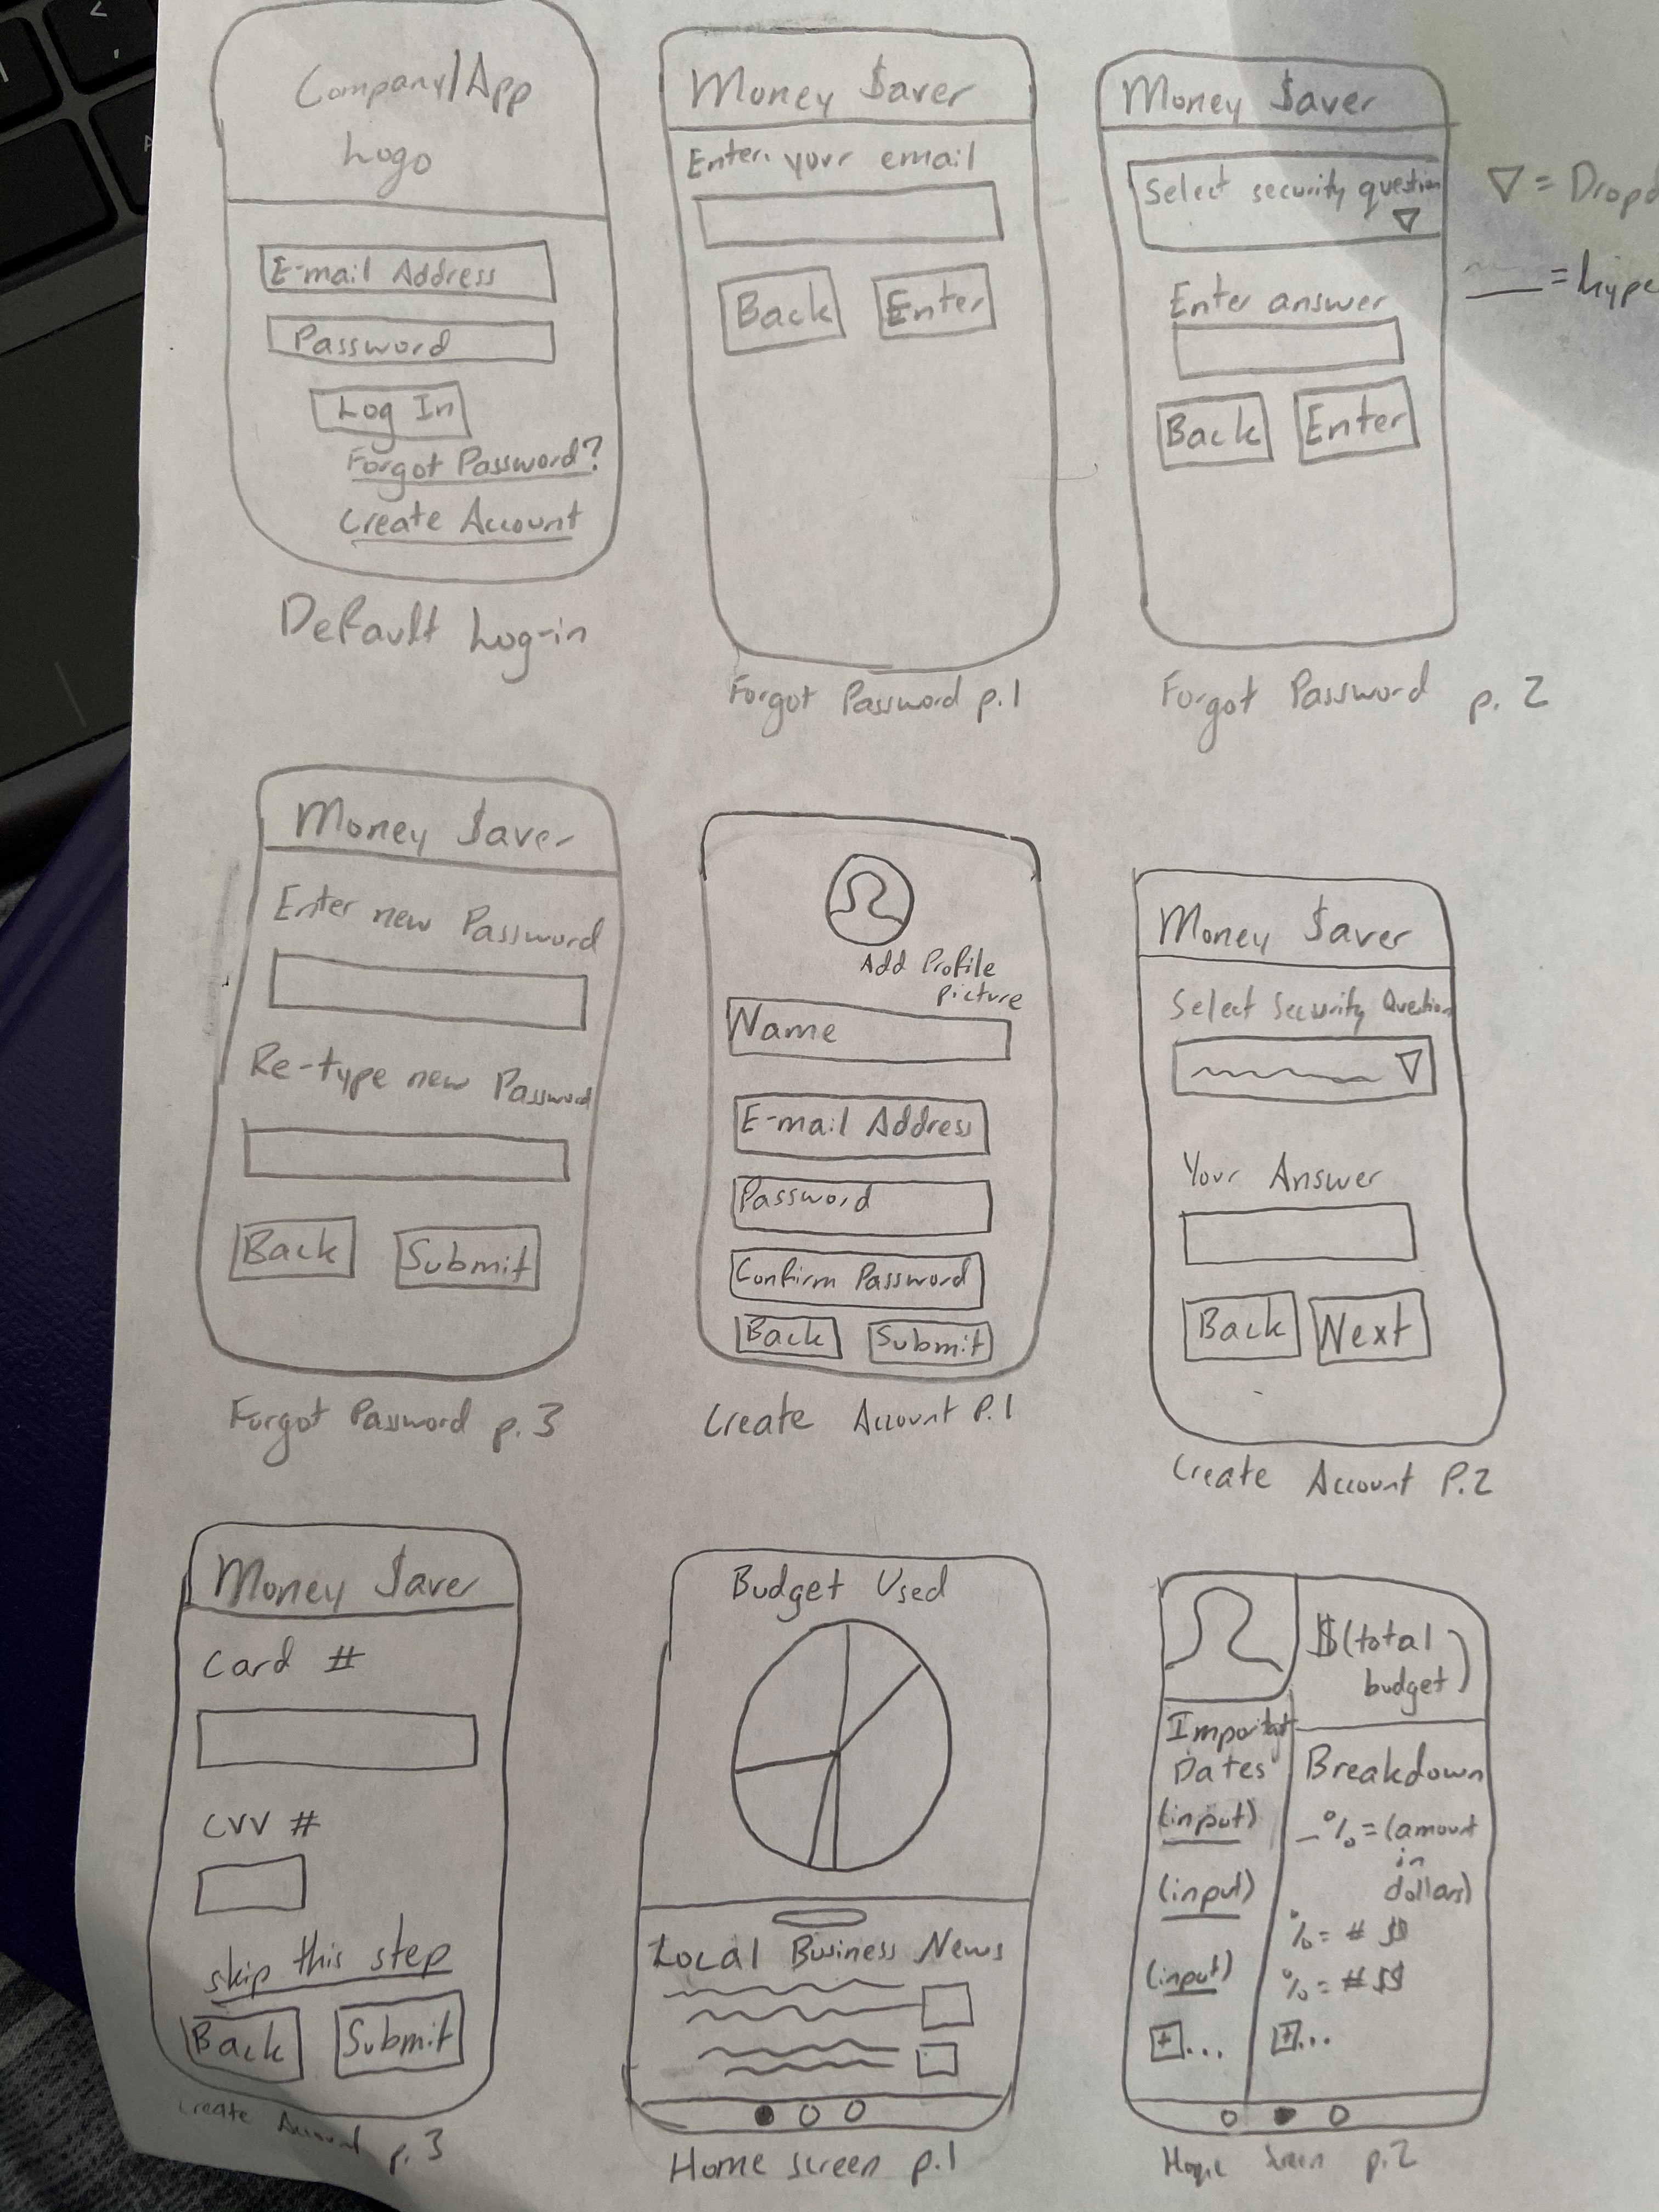 Company/App
Logo
E-mail Address
Password
Log In
Forgot Password?
Create Account
Default Log-in
Money $aver
Enter your email
Back Enter
Forgot Password p.1
Money $aver
Select security question
Enter answer
Back Enter
Forgot Password p. 2
= Dropd
= hype
Money $aver
Enter new Password
Re-type new Password
Back Submit
Forgot Password p. 3
Add Profile
picture
Name
E-mail Address
Password
Confirm Password
Back Submit
Create Account P.1
Money $aver
Select Security Question
Your Answer
Back Next
Create Account P.2
Money $aver
Card #
CVV #
skip this step
Back Submit
Create Account p. 3
Budget Used
Local Business News
Home screen p.1
$(total
budget)
Important
Dates
(input)
(input)
(input)
+...
Breakdown
_% = (amount
in
dollars)
% = # $$
% = # $$
+...
Home Screen p.2